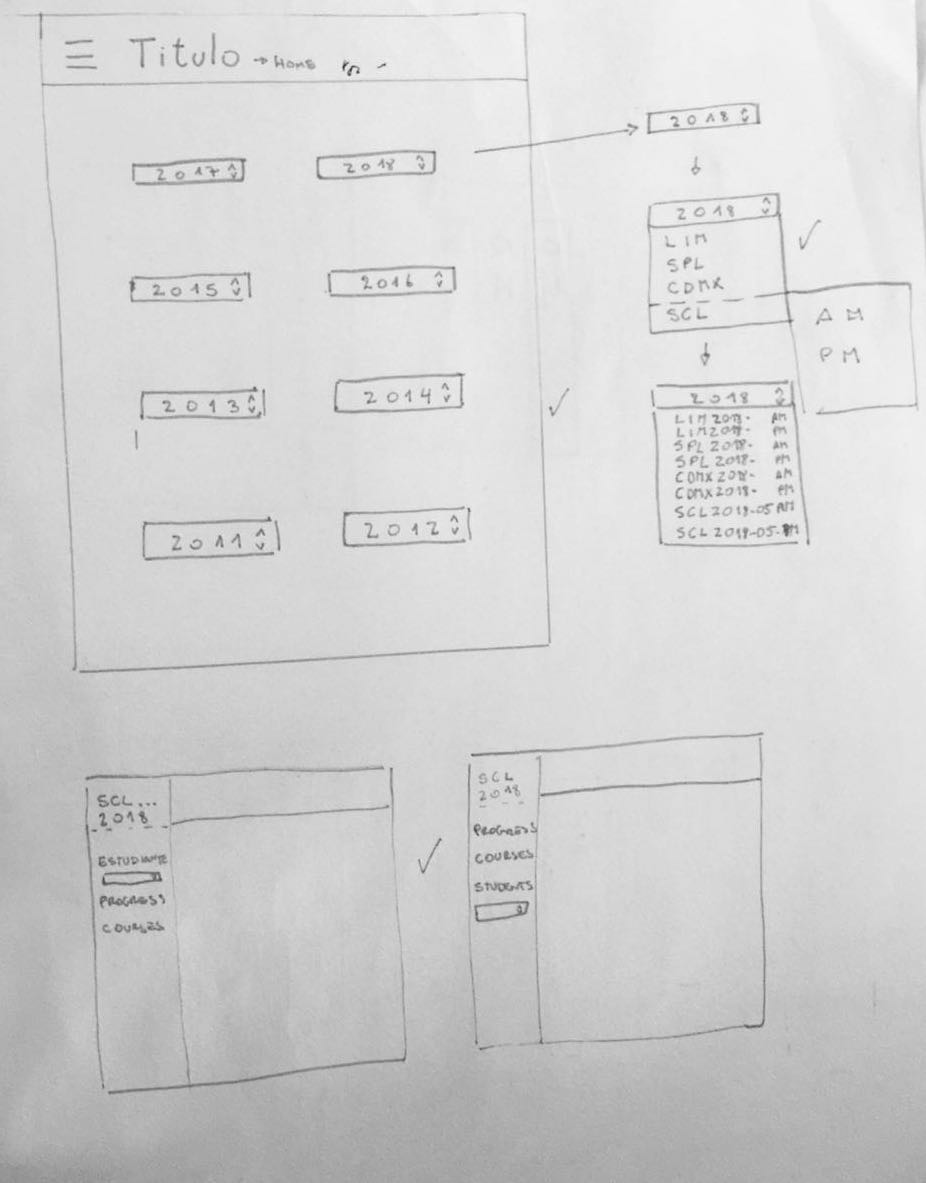 Titulo → HOME
2017 2018
2015 2016
2013 2014
2011 2012
2018
2018
LIM
SPL
CDMX
SCL
AM
PM
2018
LIM2018- AM
LIM2018- PM
SPL 2018- AM
SPL 2018- PM
CDMX2018- AM
CDMX2018- PM
SCL2018-05 AM
SCL2018-05-PM
SCL...
2018
ESTUDIANTE
PROGRESS
COURSES
SCL
2018
PROGRESS
COURSES
STUDENTS